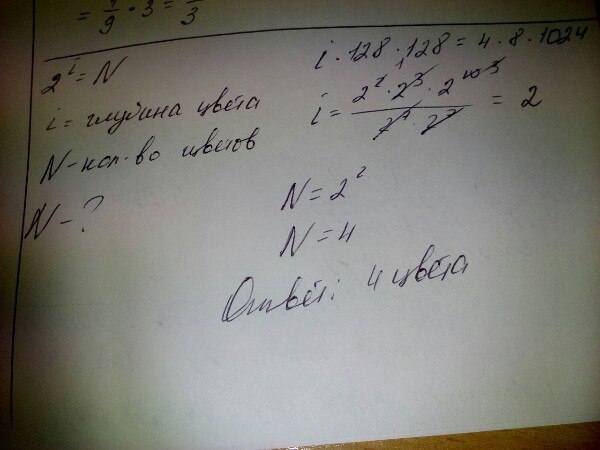 = 1/9 · 3 = 1/3
2^i = N
i = глубина цвета
N - кол-во цветов
N - ?
i · 128 · 128 = 4 · 8 · 1024
i = (2^2 · 2^3 · 2^10) / (2^7 · 2^7) = 2
N = 2^2
N = 4
Ответ: 4 цвета